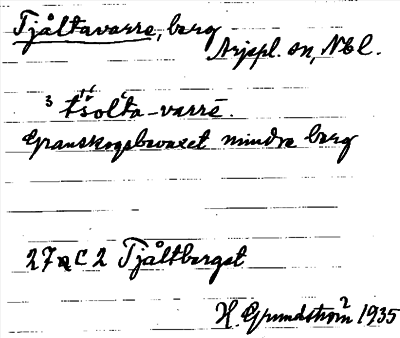 Tjåltavarre, berg
Arjepl. sn, Nbl.
3 tšolta-varrē.
Granskogsbevuxet mindre berg
27 C 2 Tjåltberget
H. Grundström 1935